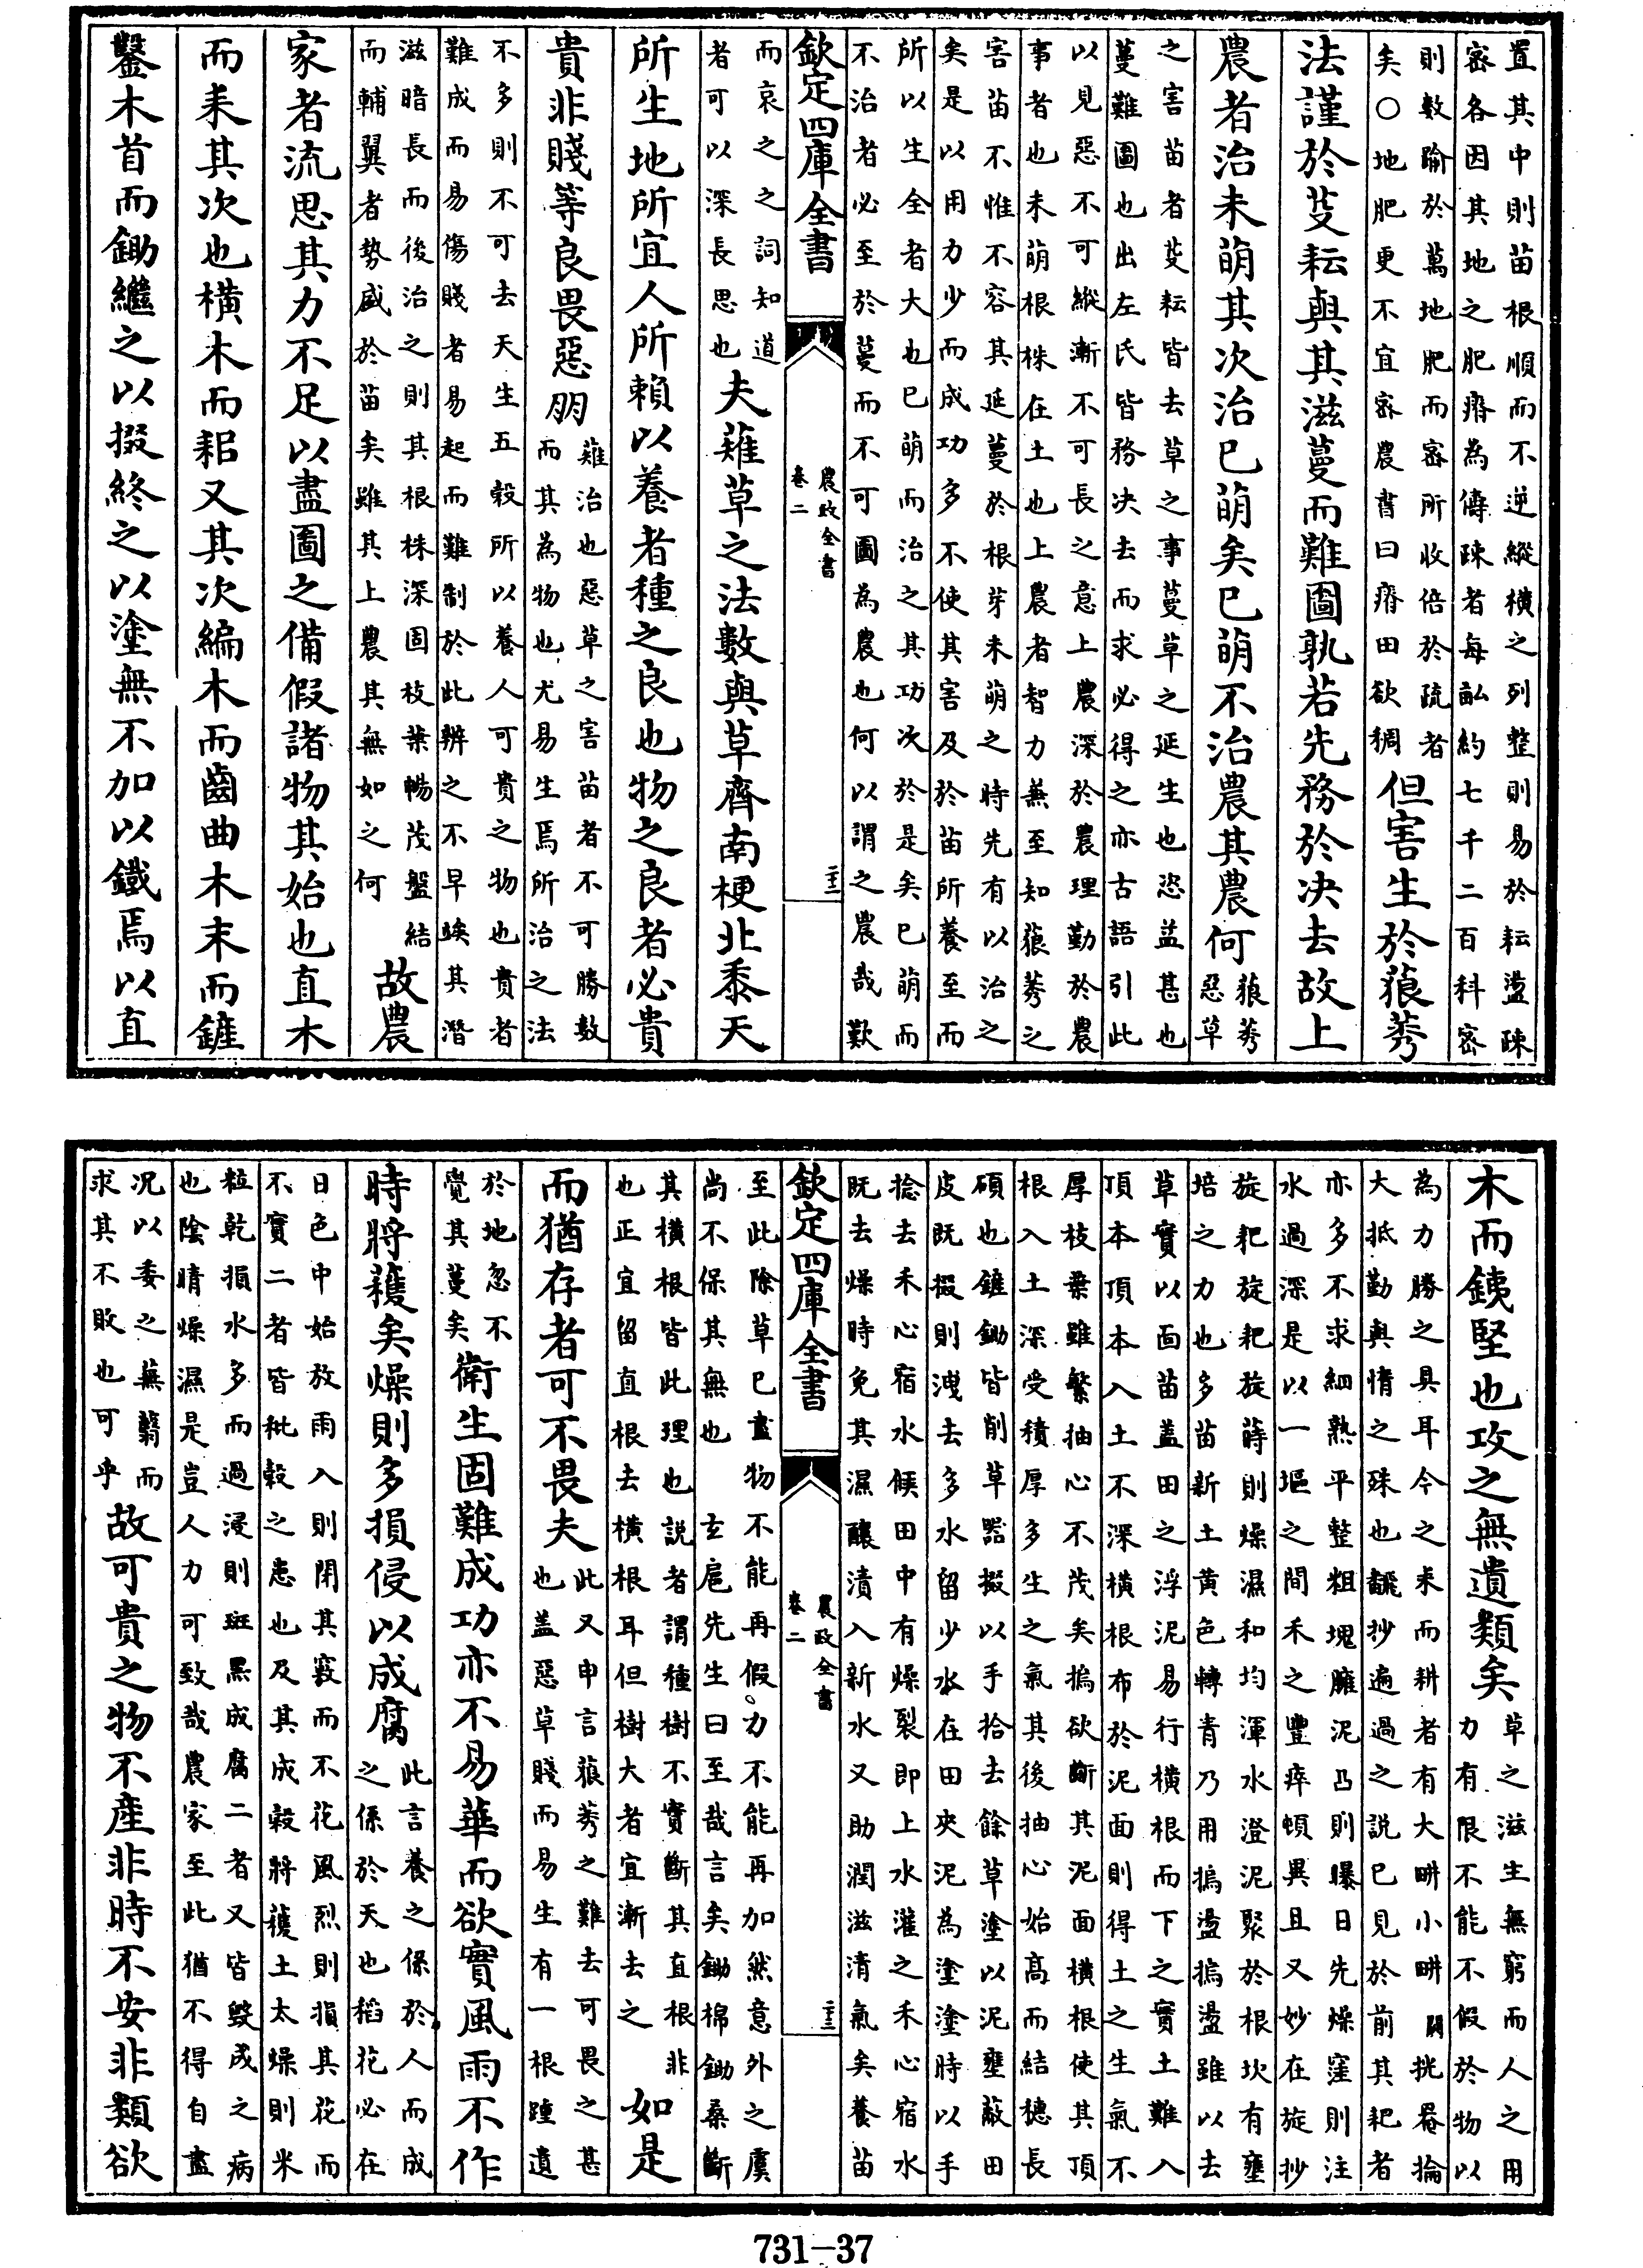 置其中則苗根順而不逆縱橫之列整則易於耘盪疎
密各因其地之肥瘠為儔疎者每畝約七千二百科密
則數踰於萬地肥而密所收倍於疏者
矣○地肥更不宜密農書曰瘠田欲稠
但害生於蒗莠
法謹於芟耘與其滋蔓而難圖孰若先務於决去故上
農者治未萌其次治已萌矣已萌不治農其農何
蒗莠
惡草
之害苗者芟耘皆去草之事蔓草之延生也恣益甚也
蔓難圖也出左氏皆務决去而求必得之亦古語引此
以見惡不可縱漸不可長之意上農深於農理勤於農
事者也未萌根株在土也上農者智力兼至知蒗莠之
害苗不惟不容其延蔓於根芽未萌之時先有以治之
矣是以用力少而成功多不使其害及於苗所養至而
所以生全者大也已萌而治之其功次於是矣已萌而
不治者必至於蔓而不可圖為農也何以謂之農哉歎
欽定四庫全書
農政全書
卷二
而哀之之詞知道
者可以深長思也
夫薙草之法數與草齊南梗北黍天
所生地所宜人所賴以養者種之良也物之良者必貴
貴非賤等良畏惡朋
薙治也惡草之害苗者不可勝數
而其為物也尤易生焉所治之法
不多則不可去天生五穀所以養人可貴之物也貴者
難成而易傷賤者易起而難制於此辨之不早竢其潛
滋暗長而後治之則其根株深固枝葉暢茂盤結
而輔翼者勢盛於苗矣雖其上農其無如之何
故農
家者流思其力不足以盡圖之備假諸物其始也直木
而耒其次也橫木而耜又其次編木而齒曲木末而鏟
鑿木首而鋤繼之以掇終之以塗無不加以鐵焉以直
木而銕堅也攻之無遺類矣
草之滋生無窮而人之用
力有限不能不假於物以
為力勝之具耳今之耒而耕者有大畊小畊闢挑罨掄
大抵勤與惰之殊也飜抄遍過之說已見於前其耙者
亦多不求細熟平整粗塊臃泥凸則曝日先燥窪則注
水過深是以一塸之間禾之豐瘁頓異且又妙在旋抄
旋耙旋耙旋蒔則燥濕和均渾水澄泥聚於根坎有壅
培之力也多苗新土黄色轉青乃用摀盪摀盪雖以去
草實以面苗苗盖田之浮泥易行橫根而下之實土難入
頂本頂本入土不深橫根布於泥面則得土之生氣不
厚枝葉雖繁抽心不茂矣摀欲斷其泥面橫根使其頂
根入土深受積厚多生之氣其後抽心始高而結穗長
碩也鏟鋤皆削草器掇以手拾去餘草塗以泥壅蔽田
皮既掇則洩去多水留少水在田夾泥為塗塗時以手
捻去禾心宿水候田中有燥裂即上水灌之禾心宿水
既去燥時免其濕釀漬入新水又助潤滋清氣矣養苗
欽定四庫全書
農政全書
卷二
至此除草已盡物不能再假力不能再加然意外之虞
尚不保其無也
玄扈先生曰至哉言矣鋤棉鋤桑斷
其橫根皆此理也說者謂種樹不實斷其直根非
也正宜留直根去橫根耳但樹大者宜漸去之
如是
而猶存者可不畏夫
此又申言蒗莠之難去可畏之甚
也盖惡草賤而易生有一根踵遺
於地忽不
覺其蔓矣
衛生固難成功亦不易華而欲實風雨不作
時將穫矣燥則多損侵以成腐
此言養之係於人而成
之係於天也稻花必在
日色中始放雨入則閉其竅而不花風烈則損其花而
不實二者皆秕穀之患也及其成穀將穫土太燥則米
粒乾損水多而過浸則斑黑成腐二者又皆毀成之病
也陰晴燥濕是豈人力可致哉農家至此猶不得自盡
况以委之蕪蘙而
求其不敗也可乎
故可貴之物不產非時不安非類欲
731-37